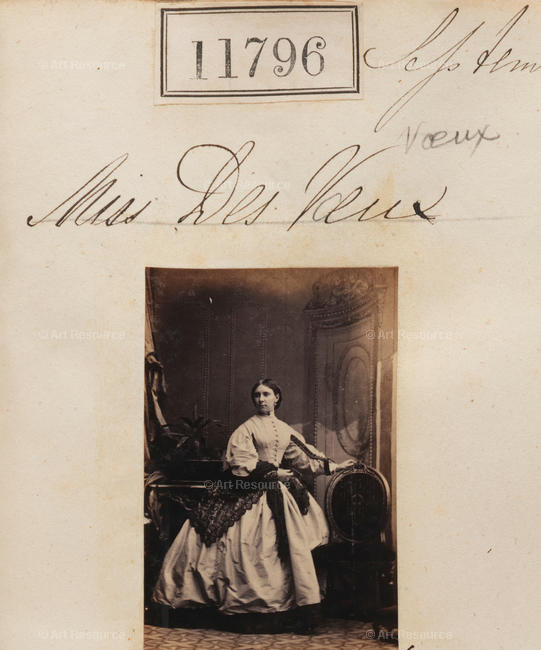 11796
Septem
Vœux
Miss Des Vœux
© Art Resource
© Art Resource
© Art Resource
© Art Resource
© Art Resource
© Art Resource
© Art Resource
© Art Resource
© Art Resource